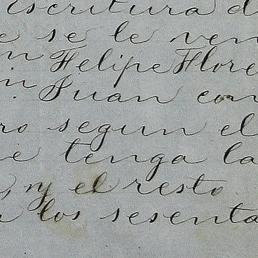 escritura d
e se le ven
n Felipe Flore
n. Juan con
ro segun el
e tenga la
, y el resto
los sesenta